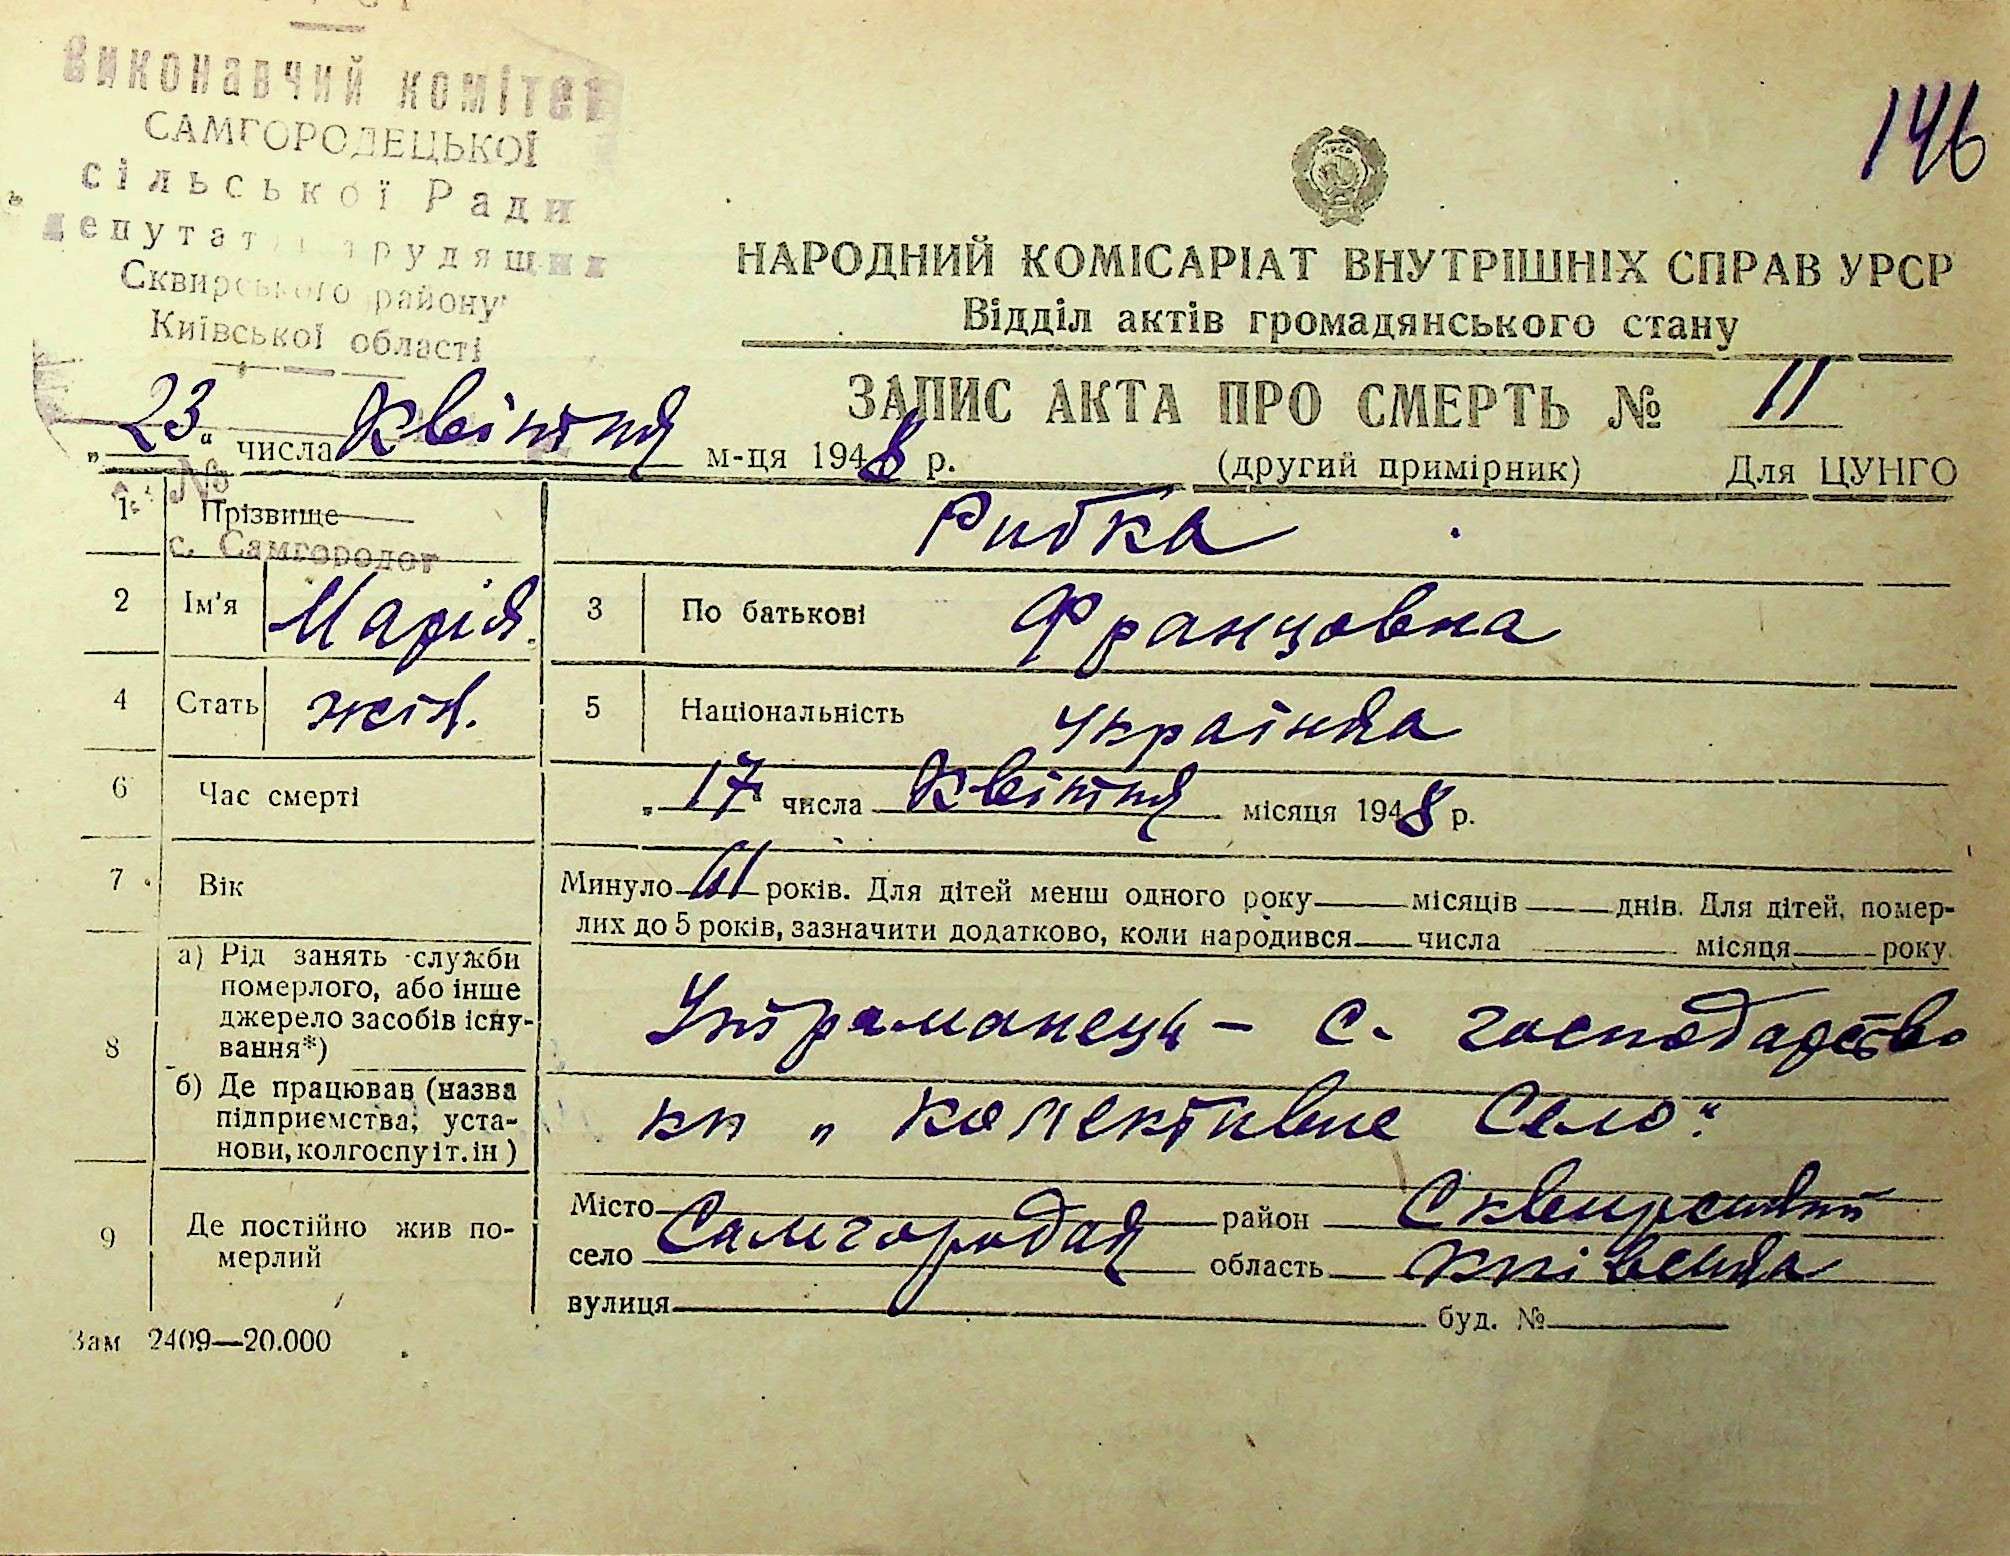 Виконавчий комітет
САМГОРОДЕЦЬКОЇ
сільської Ради
депутатів трудящих
Сквирського району
Київської області
№
с. Самгородок
146
УРСР
НАРОДНИЙ КОМІСАРІАТ ВНУТРІШНІХ СПРАВ УРСР
Відділ актів громадянського стану
ЗАПИС АКТА ПРО СМЕРТЬ № 11
„23“ числа Квітня м-ця 1948 р. (другий примірник) Для ЦУНГО
1 Прізвище Рибка
2 Ім'я Марія 3 По батькові Францовна
4 Стать жін. 5 Національність українка
6 Час смерті „17“ числа Квітня місяця 1948 р.
7 Вік Минуло 61 років. Для дітей менш одного року місяців днів. Для дітей, помер-
лих до 5 років, зазначити додатково, коли народився числа місяця року.
8 а) Рід занять служби
померлого, або інше
джерело засобів існу-
вання*)
Утриманець – с. господарство
б) Де працював (назва
підприємства, уста-
нови, колгоспу і т. ін)
кп „Колективне Село“
9 Де постійно жив по-
мерлий
Місто район Сквирський
село Самгородок область Київська
вулиця буд. №
Зам 2409—20.000